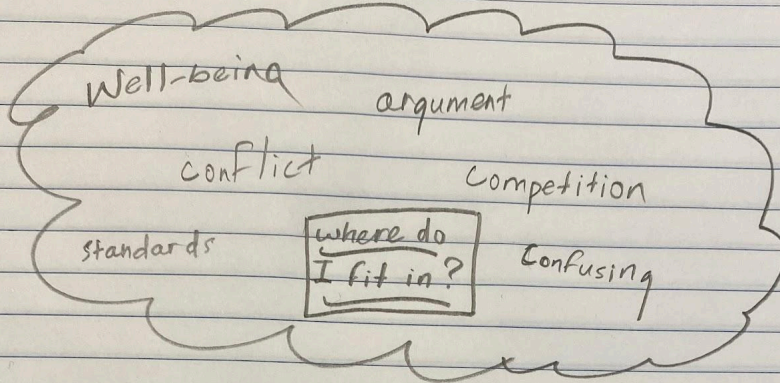 Well-being
argument
conflict
Competition
standards
where do
I fit in?
Confusing